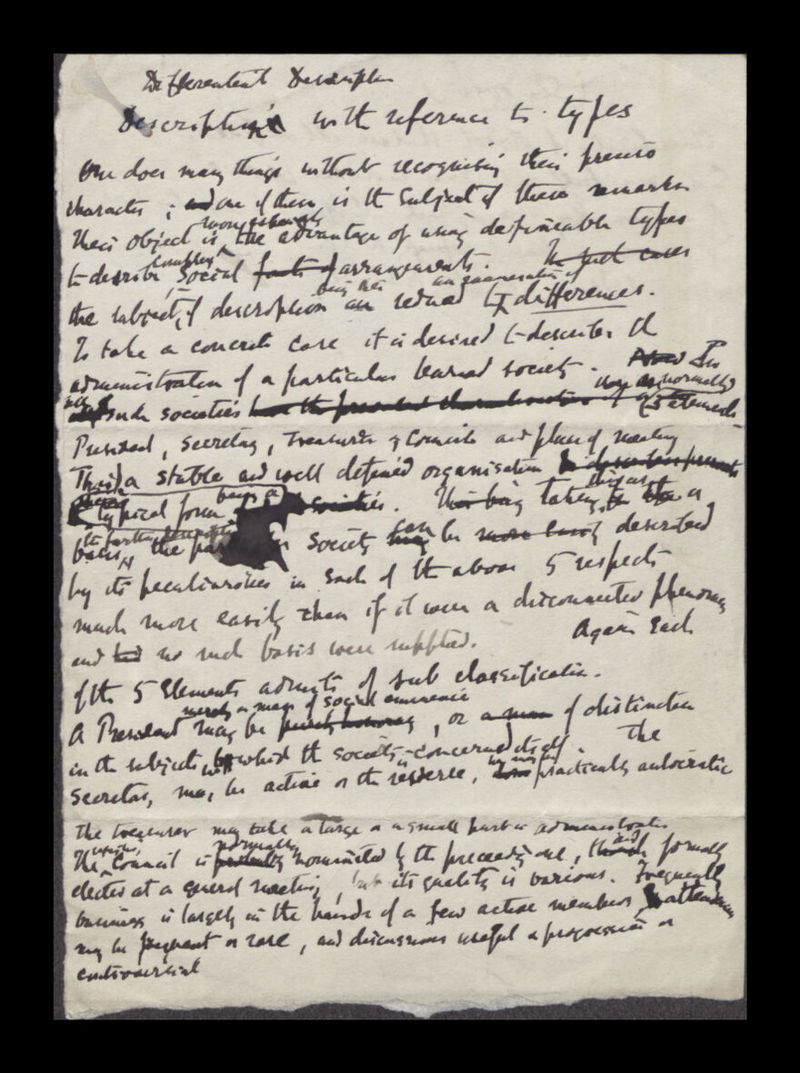 Differential Description
Description with reference to types
One does many things without recognising their precise
character; and one of them is the subject of these remarks
Their object is the advantage of using defineable types
to describe complex social facts of arrangements. In such cases
the subject of description being then an reduced to an enumeration of differences.
To take a concrete case it is desired to describe the
administration of a particular learned society. Now
all such societies have the normally a
President, Secretary, Treasurer & Council and place of meeting
This is a stable and well defined organisation
typical form being a societies. This being taken as a
basis, the society may can be more easily described
by its peculiarities in each of the above 5 respects
much more easily than if it were a disconnected phenomenon
and had no such basis were supplied. Again Each
of the 5 Elements admits of sub classification.
merely a man of social eminence
A President may be purely honorary, or a man of distinction
in the subjects with which the society is concerned itself. The
Secretary, may be active or the reverse, he may be practically autocratic
The treasurer may take a large or a small part in administration
The Council is normally nominated by the preceding one, and formally
elected at a general meeting, but its quality is various. Frequently
business is largely in the hands of a few active members, attendance
may be frequent or rare, and discussions useful or
controversial